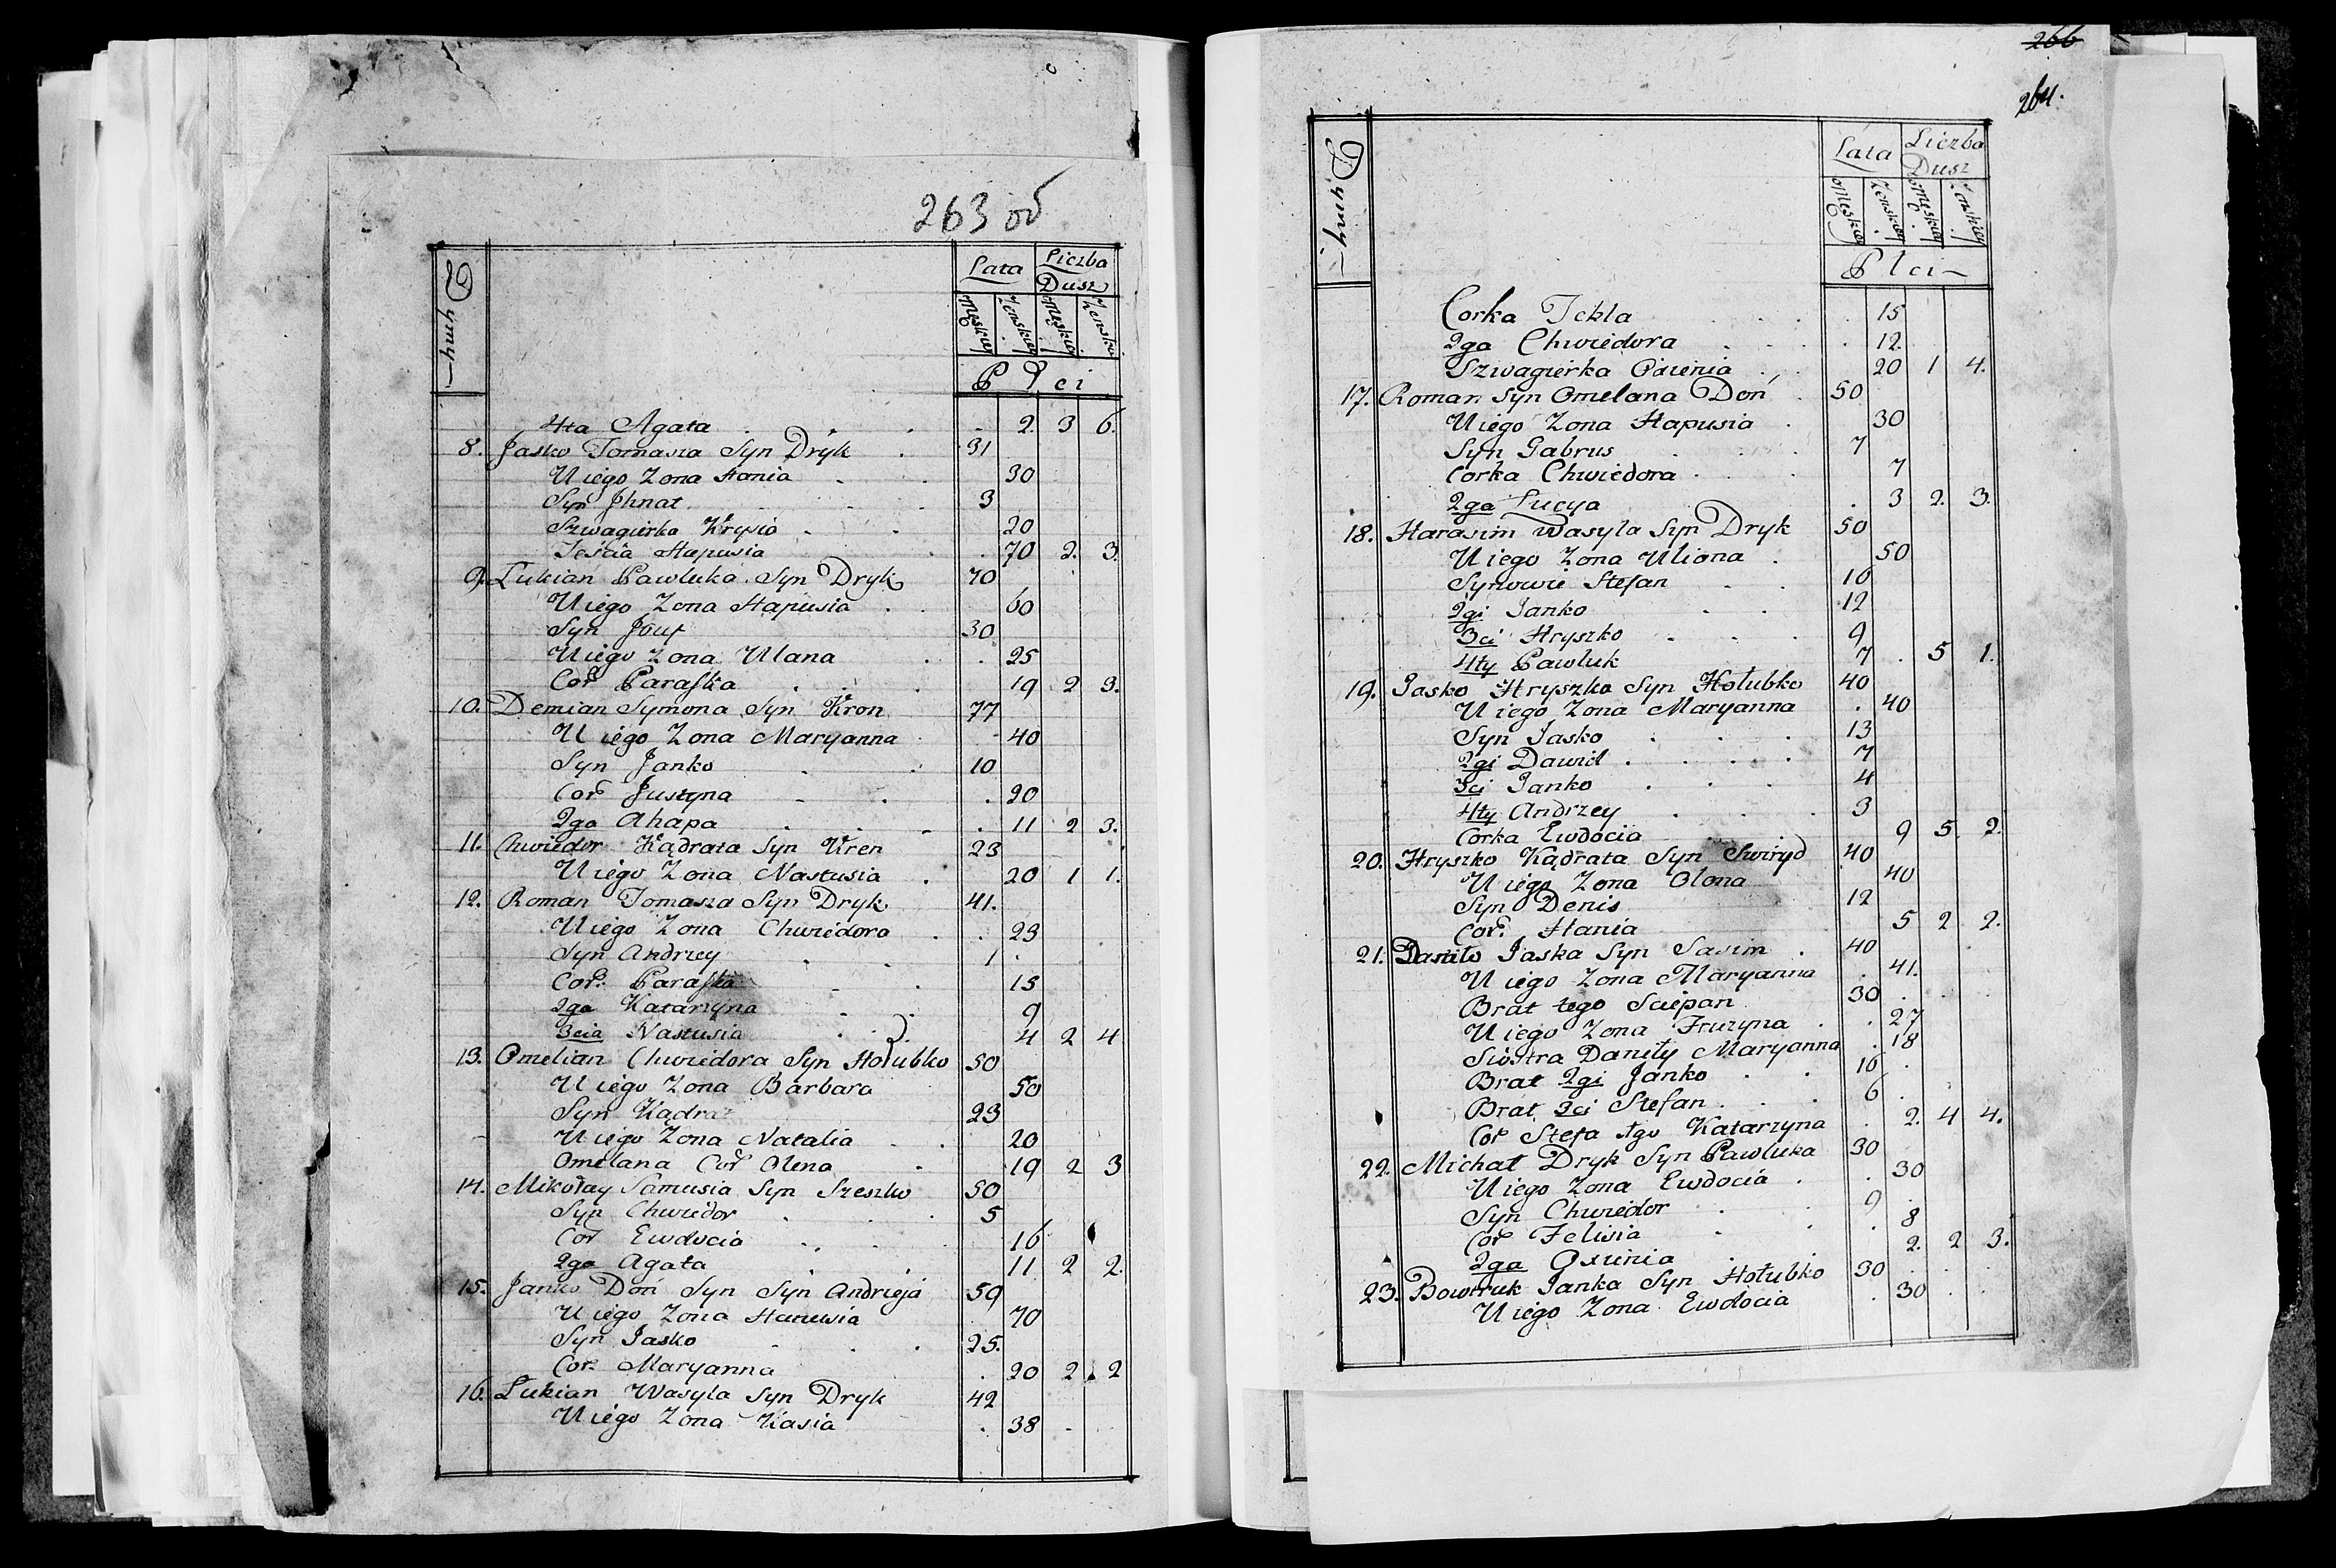 263 об
Dymy
Lata Liczba Dusz
Męskiey Żenskiey Męskiey Żenskiey
Płci
4ta Agata 2. 3 6.
8. Jasko Tomasza Syn Dryk 31
U iego Zona Hania 30
Syn Jhnat 3
Szwagierka Krysia 20
Teścia Hapusia 70 2. 3.
9. Łukian Pawluka Syn Dryk 70
U iego Zona Hapusia 60
Syn Jouf 30
U iego Zona Ulana 25
Cor Paraska 19 2 3.
10. Demian Symona Syn Kron 77
U iego Zona Maryanna 40
Syn Janko 10
Cor Justyna 20
2ga Ahapa 11 2 3.
11. Chwiedor Kądrata Syn Kren 23
U iego Zona Nastusia 20 1 1.
12. Roman Tomasza Syn Dryk 41.
U iego Zona Chwiedora 23
Syn Andrzey 1
Cor. Paraska 15
2ga Katarzyna 9
3cia Nastusia 4 2 4
13. Omelian Chwiedora Syn Hołubko 50
U iego Zona Barbara 50
Syn Kądrat 23
U iego Zona Natalia 20
Omelana Cor Olena 19 2 3
14. Mikołay Samusia Syn Szeszko 50
Syn Chwiedor 5
Cor Ewdocia 16
2ga Agata 11 2 2.
15. Janko Doń Syn Syn Andrieja 59
U iego Zona 70
Syn Jasko 25.
Cor. Maryanna 20 2 2
16. Łukian Wasyla Syn Dryk 42
U iego Zona Kasia 38
266
264.
Dymy
Lata Liczba Dusz
Męskiey Żenskiey Męskiey Żenskiey
Płci
Corka Tekla 15
2ga Chwiedora 12.
Szwagierka 20 1 4.
17. Roman Syn Omelana Doń 50
U iego Zona Hapusia 30
Syn Gabrus 7
Corka Chwiedora 7
2ga Łucya 3 2. 3.
18. Harasim Wasyla Syn Dryk 50
U iego Zona Uliona 50
Synowie Stefan 16
2gi Janko 12
3ci Hryszko 9
4ty Pawluk 7 5 1.
19. Jasko Hryszka Syn Hołubko 40
U iego Zona Maryanna 40
Syn Jasko 13
2gi Dawid 7
3ci Janko 4
4ty Andrzey 3
Corka Ewdocia 9 5 2.
20. Hryszko Kądrata Syn Swiryd 40
U iego Zona Olona 40
Syn Denis 12
Cor. Hania 5 2 2.
21. Daniło Jaska Syn Sasim 40
U iego Zona Maryanna 41.
Brat tego Sciepan 30
U iego Zona Fruzyna 27
Siostra Daniły Maryanna 18
Brat 2gi Janko 16
Brat 3ci Stefan 6
Cor Katarzyna 2. 4 4.
22. Michał Dryk Syn Pawluka 30
U iego Zona Ewdocia 30
Syn Chwiedor 9
Cor Felisia 8
2ga Oxiinia 2. 2 3.
23. Bowtruk Janka Syn Hołubko 30
U iego Zona Ewdocia 30